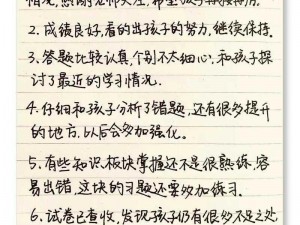 情况，感谢老师关注，希望孩子再接再厉。
2.成绩良好，看的出孩子的努力，继续保持。
3.答题比较认真，个别不太细心，和孩子探
讨了最近的学习情况。
4.仔细和孩子分析了错题，还有很多提升
的地方，以后会多加强化。
5.有些知识板块掌握还不是很熟练，容
易出错，这块的习题还要多加练习。
6.试卷已查收，发现孩子仍有很多不足之处